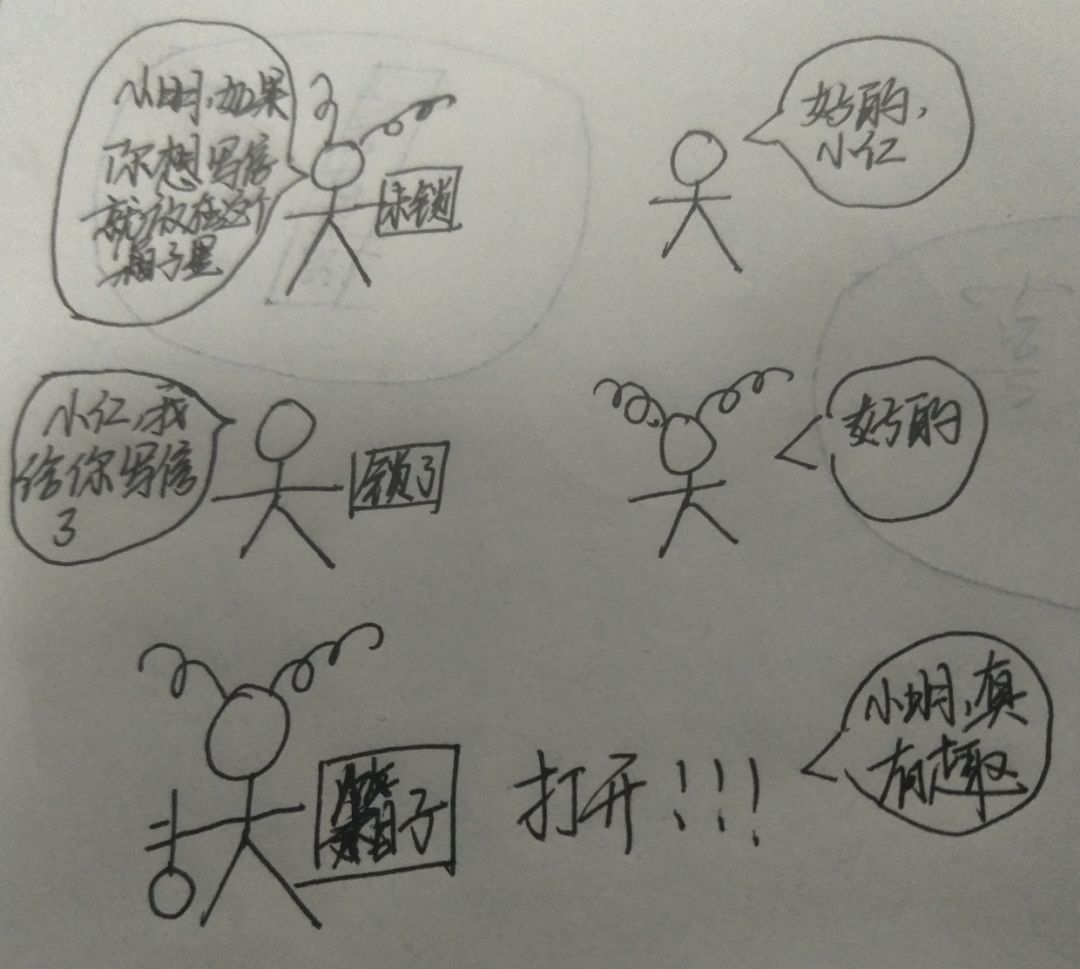 小明,如果
你想写信
就放在这个
箱子里
未锁
好的,
小仁
小仁,我
给你写信
了
锁了
好的
箱子
打开!!!
小明,真
有趣